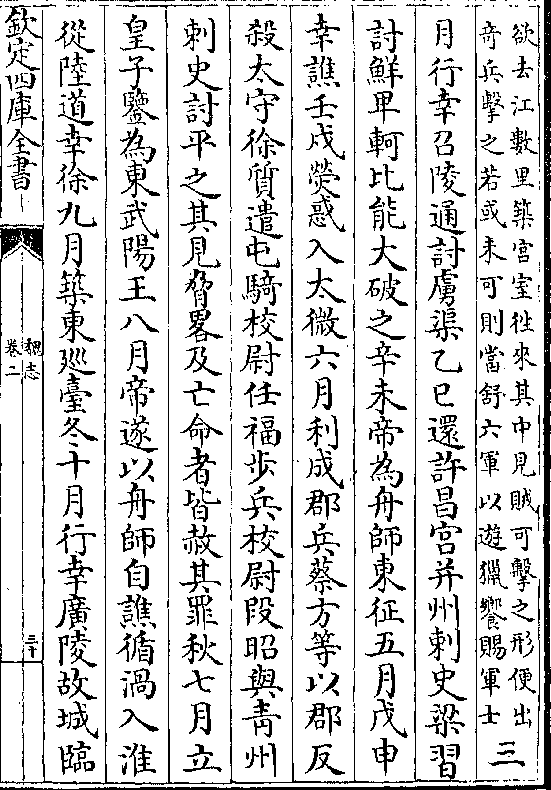 欲去江數里築宮室徃來其中見賊可擊之形便出
奇兵擊之若或未可則當舒六軍以遊獵饗賜軍士
三
月行幸召陵通討虜渠乙巳還許昌宮并州刺史梁習
討鮮卑軻比能大破之辛未帝為舟師東征五月戊申
幸譙壬戌熒惑入太微六月利成郡兵蔡方等以郡反
殺太守徐質遣屯騎校尉任福步兵校尉段昭與青州
刺史討平之其見脅畧及亡命者皆赦其罪秋七月立
皇子鑒為東武陽王八月帝遂以舟師自譙循渦入淮
從陸道幸徐九月築東廵臺冬十月行幸廣陵故城臨
欽定四庫全書
魏志
卷二
三十